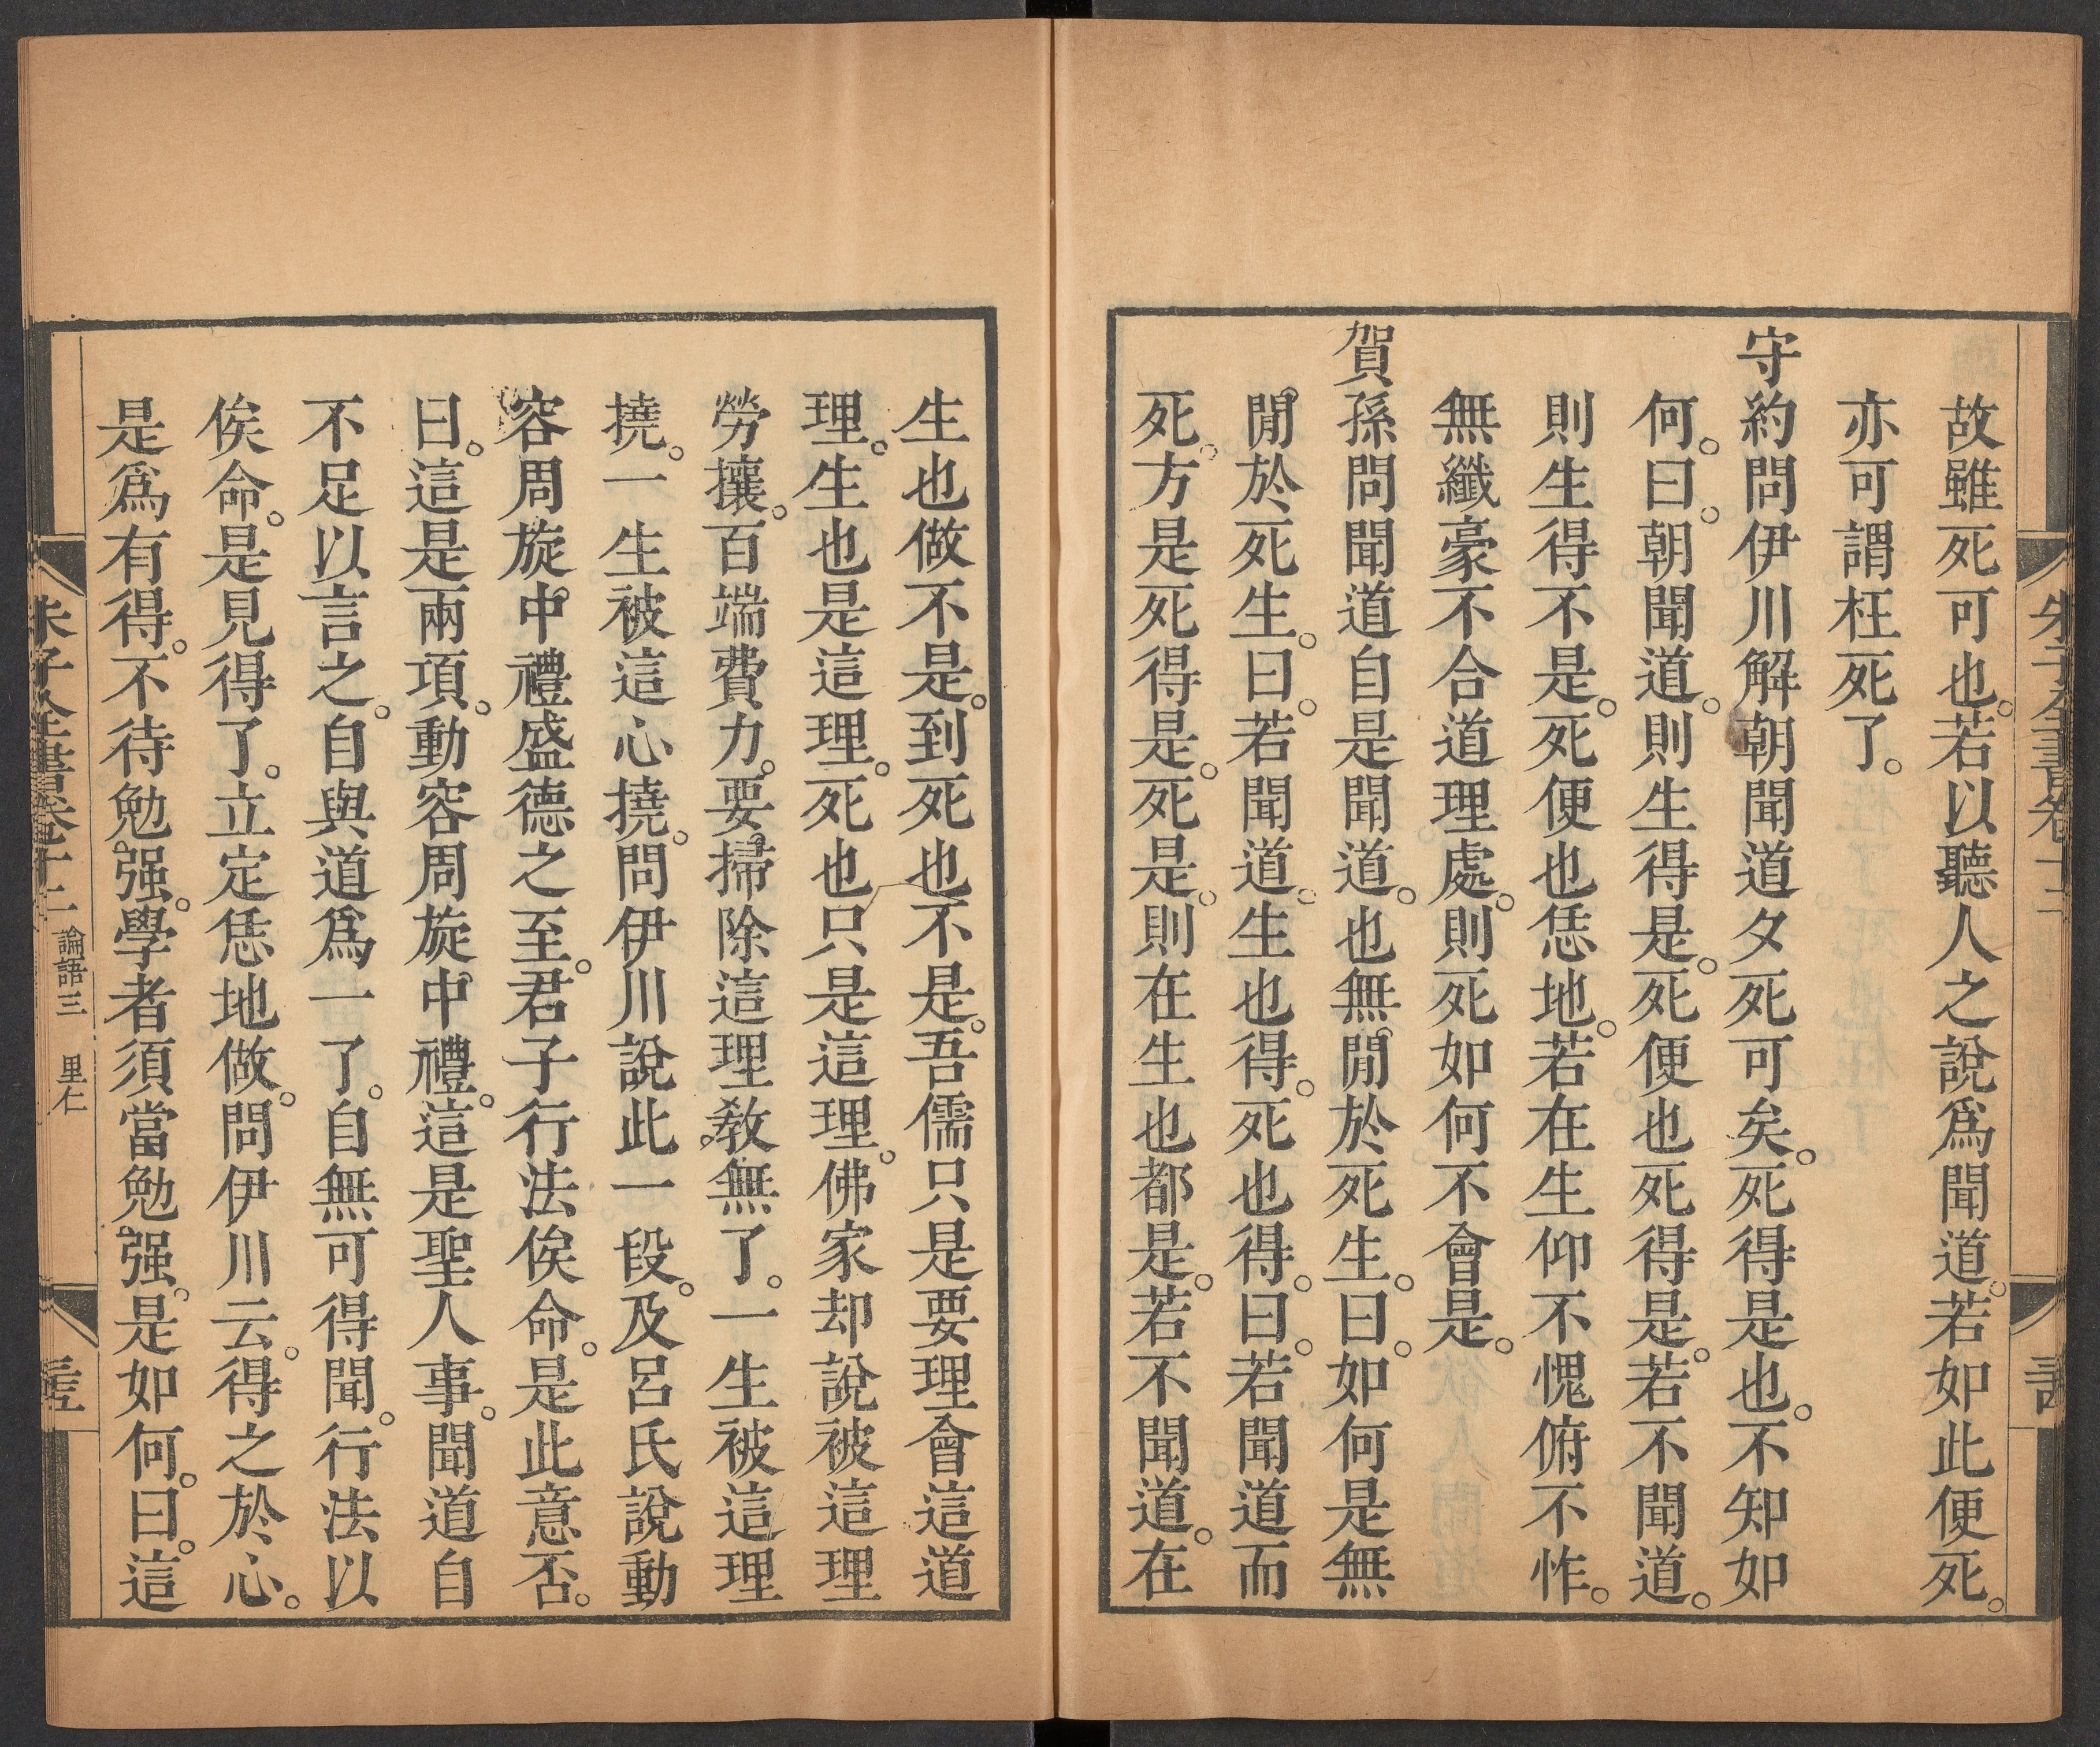 故雖死可也。若以聽人之說爲聞道。若如此便死。
亦可謂枉死了。
守約問伊川解朝聞道夕死可矣。死得是也。不知如
何。曰。朝聞道。則生得是。死便也死得是。若不聞道。
則生得不是。死便也恁地。若在生仰不愧俯不怍。
無纖豪不合道理處。則死如何不會是。
賀孫問聞道自是聞道。也無閒於死生。曰。如何是無
閒於死生。曰。若聞道。生也得。死也得。曰。若聞道而
死。方是死得是。死是。則在生也都是。若不聞道。在
生也做不是。到死也不是。吾儒只是要理會這道
理。生也是這理。死也只是這理。佛家却說被這理
勞攘。百端費力。要掃除這理。教無了。一生被這理
撓。一生被這心撓。問伊川說此一段。及呂氏說動
容周旋中禮盛德之至。君子行法俟命。是此意否。
曰。這是兩項。動容周旋中禮。這是聖人事。聞道自
不足以言之。自與道爲一了。自無可得聞。行法以
俟命。是見得了。立定恁地做。問伊川云。得之於心。
是爲有得。不待勉强。學者須當勉强。是如何。曰。這
朱子全書卷十二 論語三 里仁